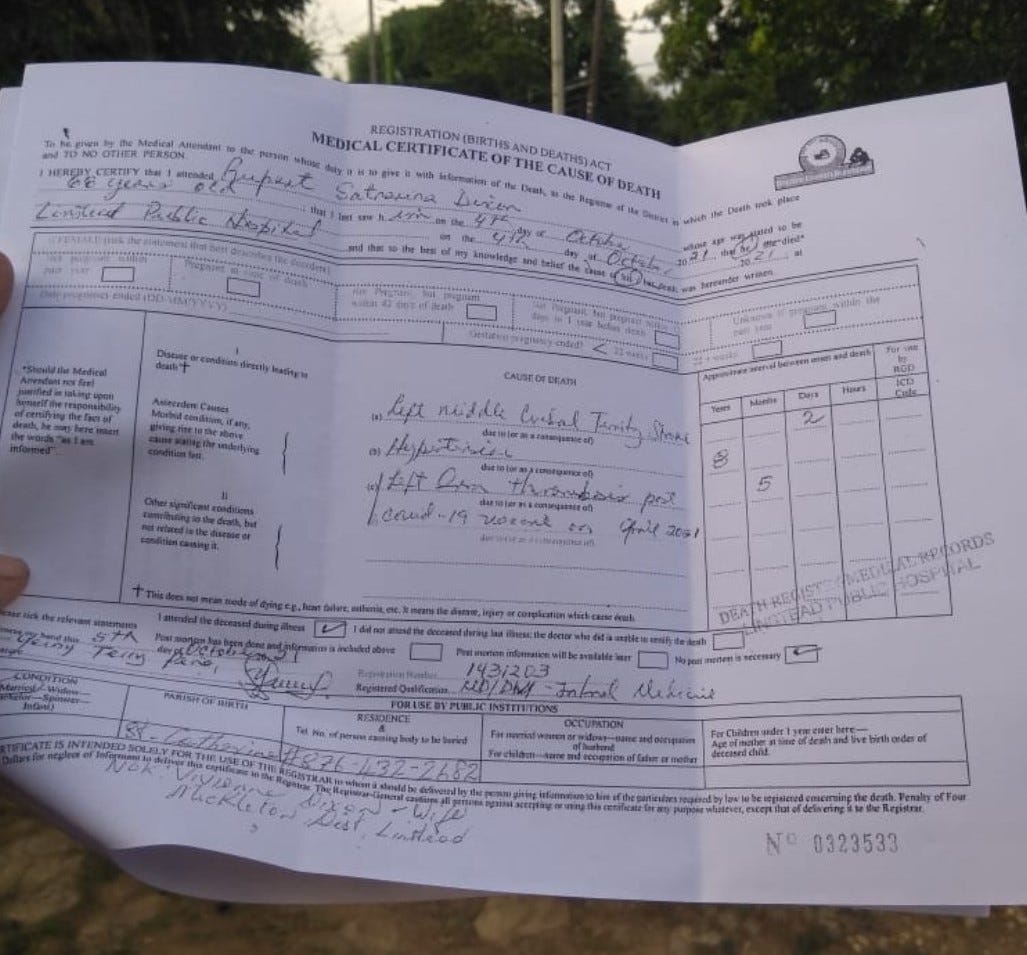 REGISTRATION (BIRTHS AND DEATHS) ACT
MEDICAL CERTIFICATE OF THE CAUSE OF DEATH
To be given by the Medical Attendant to the person whose duty it is to give it with information of the Death, to the Registrar of the District in which the Death took place
and TO NO OTHER PERSON.
I HEREBY CERTIFY that I attended Rupert Dixon whose age was stated to be
68 years old that I last saw him on the 4th day of October 2021 that he/she died*
Linstead Public Hospital on the 4th day of October 2021 at
and that to the best of my knowledge and belief the cause of his/her death was hereunder written.
IF FEMALE (tick the statement that best describes the decedent)
Not pregnant within past year
Pregnant at time of death
Not Pregnant, but pregnant within 42 days of death
Not Pregnant, but pregnant days to 1 year before death
Unknown if pregnant within the past year
Date pregnancy ended (DD/MM/YYYY)
Gestation pregnancy ended? < 22 weeks
22 + weeks
*Should the Medical Attendant not feel justified in taking upon himself the responsibility of certifying the fact of death, he may here insert the words "as I am informed".
I
Disease or condition directly leading to death †
Antecedent Causes
Morbid condition, if any, giving rise to the above cause stating the underlying condition last.
II
Other significant conditions contributing to the death, but not related to the disease or condition causing it.
CAUSE OF DEATH
(a) Left middle Stroke
due to (or as a consequence of)
(b) Hypertension
due to (or as a consequence of)
(c) Left thrombosis post
due to (or as a consequence of)
covid-19 on April 2021
due to (or as a consequence of)
Approximate interval between onset and death
For use by RGD
Years
Months
Days
Hours
ICD Code
2
8
5
DEATH REGISTER MEDICAL RECORDS
LINSTEAD PUBLIC HOSPITAL
† This does not mean mode of dying e.g., heart failure, asthenia, etc. It means the disease, injury or complication which cause death.
Please tick the relevant statements
I attended the deceased during illness ✓ I did not attend the deceased during last illness; the doctor who did is unable to certify the death
Post mortem has been done and information is included above
Post mortem information will be available later
No post mortem is necessary ✓
hand this 5th day of October 2021
Registration Number 1431203
Registered Qualification MD/DM - Internal Medicine
FOR USE BY PUBLIC INSTITUTIONS
CONDITION
Married—Widow—
Bachelor—Spinster—
Infant)
PARISH OF BIRTH
RESIDENCE
&
Tel. No. of person causing body to be buried
OCCUPATION
For married women or widows—name and occupation of husband
For children—name and occupation of father or mother
For Children under 1 year enter here—
Age of mother at time of death and live birth order of deceased child.
St. Catherine
#876-432-2682
CERTIFICATE IS INTENDED SOLELY FOR THE USE OF THE REGISTRAR to whom it should be delivered by the person giving information to him of the particulars required by law to be registered concerning the death. Penalty of Four
Dollars for neglect of Informant to deliver this certificate to the Registrar. The Registrar-General cautions all persons against accepting or using this certificate for any purpose whatever, except that of delivering it to the Registrar.
NOK Dixon - Wife
Mickleton Dist, Linstead
Nº 0323533